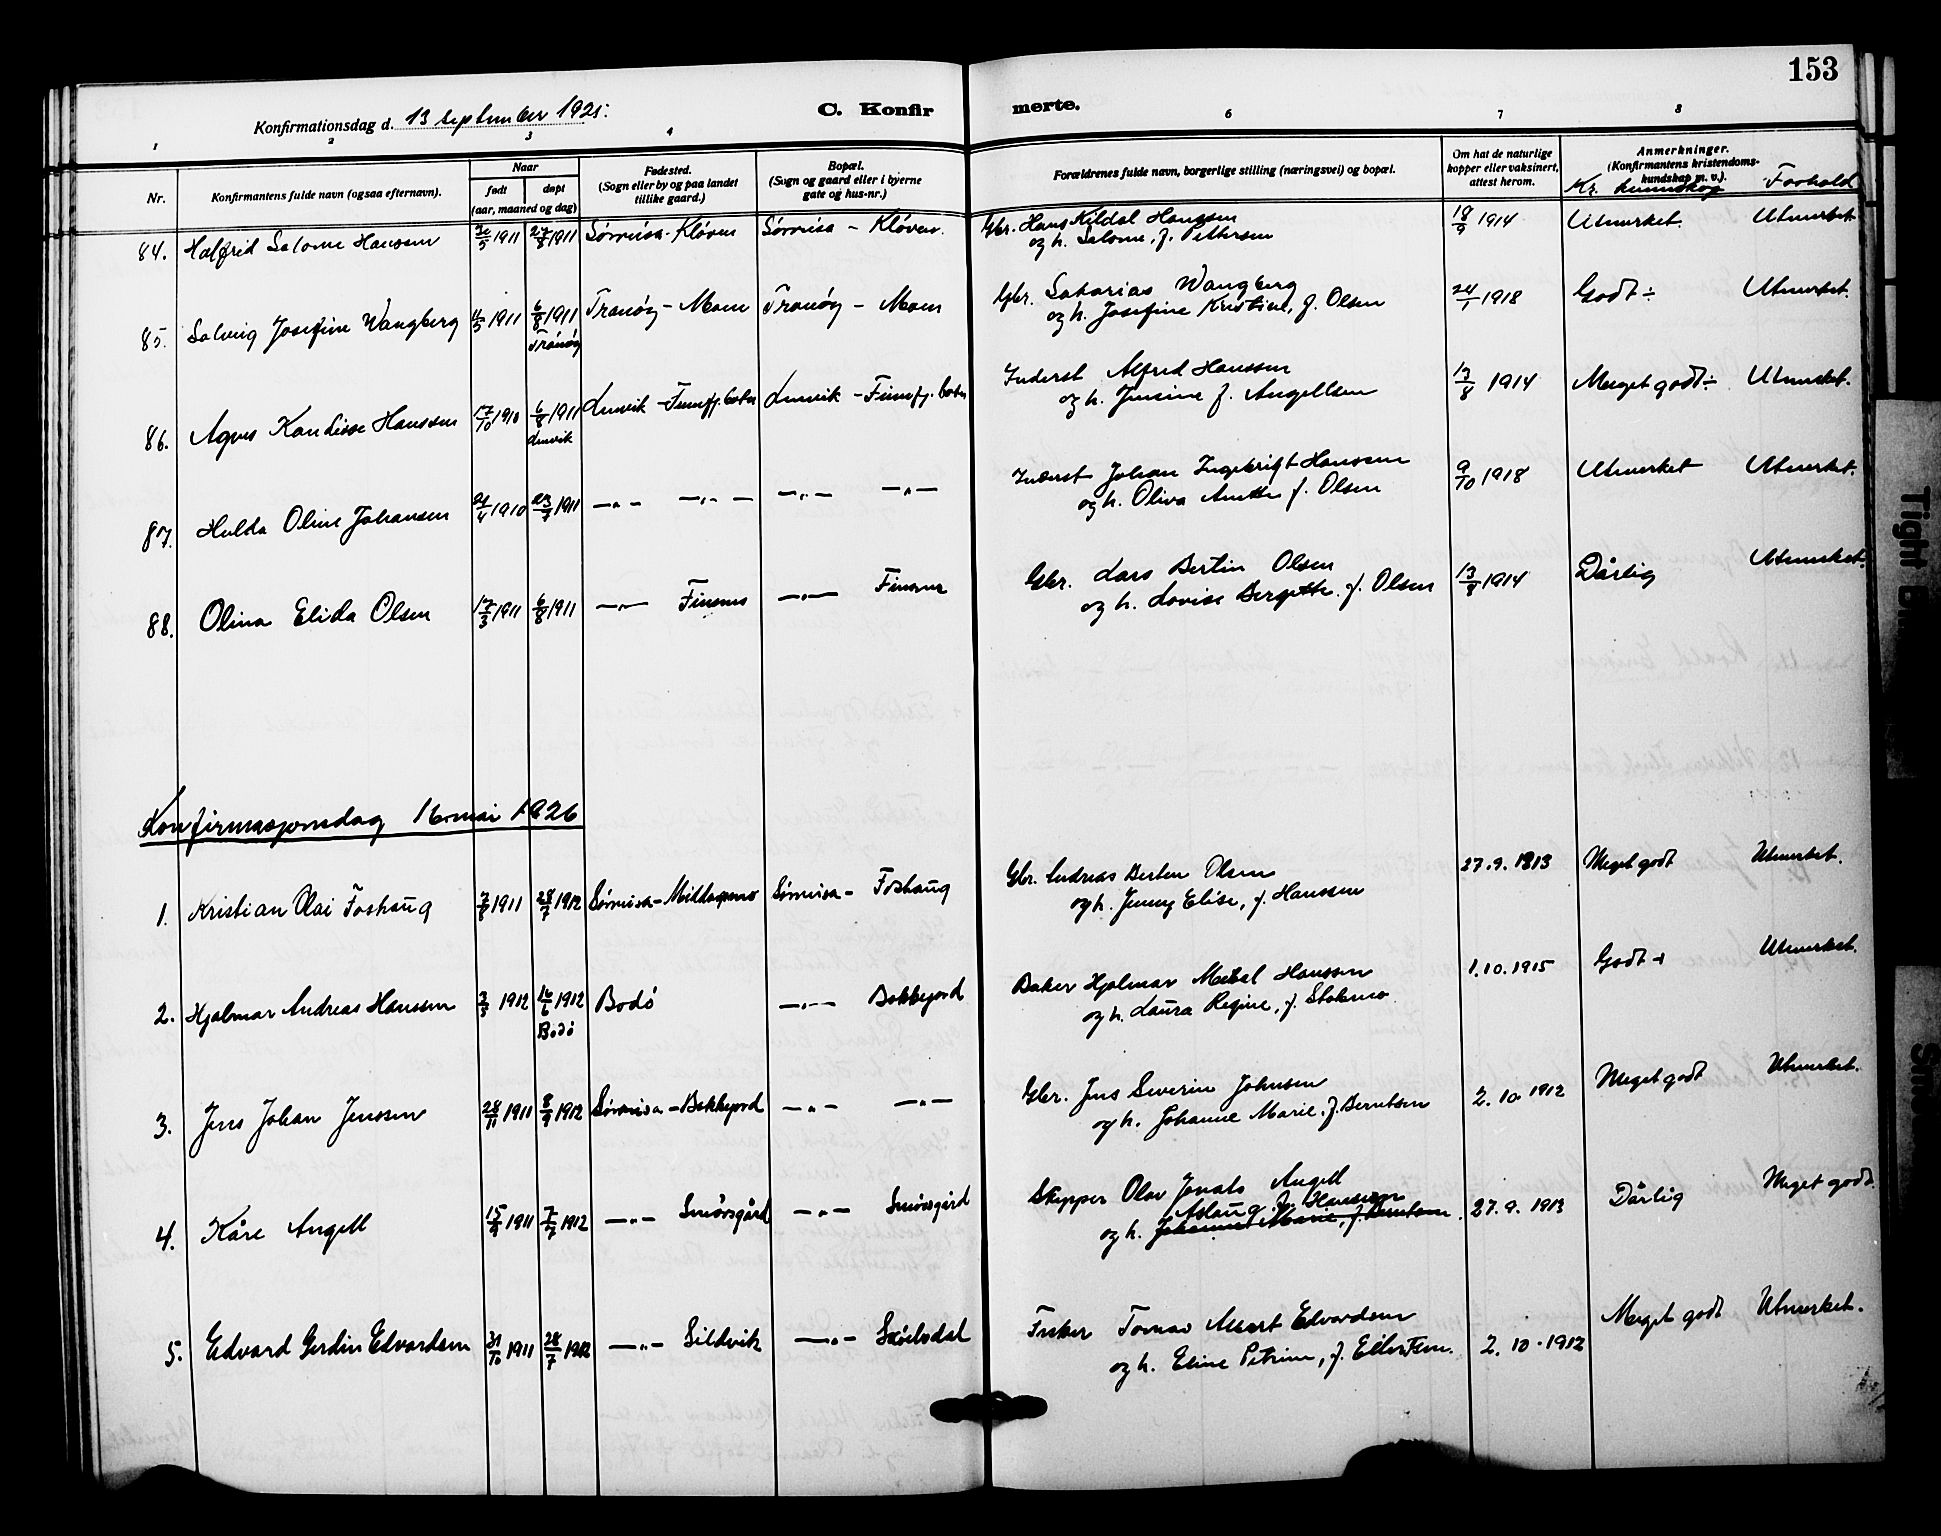 153
Konfirmationsdag d. 13 september 1925.
C. Konfirmerte.
1 2 3 4 6 7 8
Nr.
Konfirmantens fulde navn (ogsaa efternavn).
Naar
født
døpt
(aar, maaned og dag)
Fødested.
(Sogn eller by og paa landet
tillike gaard.)
Bopæl.
(Sogn og gaard eller i byerne
gate og hus-nr.)
Forældrenes fulde navn, borgerlige stilling (næringsvei) og bopæl.
Om hat de naturlige
kopper eller vaksinert,
attest herom.
Anmerkninger.
(Konfirmantens kristendoms-
kundskap m. v.).
Kr. kunnskap Forhold
84. Halfrid Salome Hanssen 1911 27/8 1911 Sørreisa - Kløven Sørreisa - Kløven. Gbr. Hans Kildal Hanssen 18/9 1914 Utmerket. Utmerket.
og h. Salome, f. Pettersen
85. Solveig Josefine Wangberg 1911 6/8 1911 Tranøy - Moen Tranøy - Moen Gbr. Sakarias Wangberg 24/1 1918 Godt ÷ Utmerket.
Tranøy og h. Josefine Kristine, f. Olsen
86. Agnes Kandisse Hanssen 17/10 1910 6/8 1911 Lenvik - Finnfj. botn Lenvik - Finnfj. botn Inderst Alfred Hanssen 13/8 1914 Meget godt ÷ Utmerket.
Lenvik og h. Jensine f. Angellsen
87. Hulda Oline Johansen 24/4 1910 23/7 1911 —„— —„— —„— —„— Inderst Johan Ingebrigt Hanssen 9/10 1918 Utmerket Utmerket.
og h. Oliva Anette f. Olsen
88. Olina Elida Olsen 17/3 1911 6/8 1911 —„— Finsnes —„— Finsnes Gbr. Lars Bertin Olsen 13/8 1914 Dårlig Utmerket.
og h. Lovise Bergette. f. Olsen
Konfirmasjonsdag 16 mai 1926
1. Kristian Olai Foshaug 1911 28/7 1912 Sørreisa - Sørreisa - Foshaug Gbr. Andreas Berten Olsen 27. 9. 1913 Meget godt Utmerket.
og h. Jenny Elise, f. Hanssen
2. Hjalmar Andreas Hanssen 1912 16/6 1912 Bodø —„— Bakkejord Baker Hjalmar Hanssen 1. 10. 1915 Godt + Utmerket.
Bodø og h. Laura Regine, f.
3. Jens Johan Jenssen 28/11 1911 8/9 1912 Sørreisa - Bakkejord —„— —„— Gbr. Jens Severin Johnsen 2. 10. 1912 Meget godt Utmerket.
og h. Johanne Marie. f. Berntsen
4. Kåre Angell 1911 7/7 1912 —„— Smørsgård —„— Smørsgård Skipper Olav Jonals Angell 27. 9. 1913 Dårlig Meget godt.
Aslaug f. Hanssen
og h. Johanne Marie, f. Berntsen.
5. Edvard Gerdin Edvardsen 31/10 1911 28/7 1912 —„— Sildvik —„— Skøelvdal Fisker Tomas Edvardsen 2. 10. 1912 Meget godt Utmerket.
og h. Eline Petrine, f. Eilertsen.
Tight B